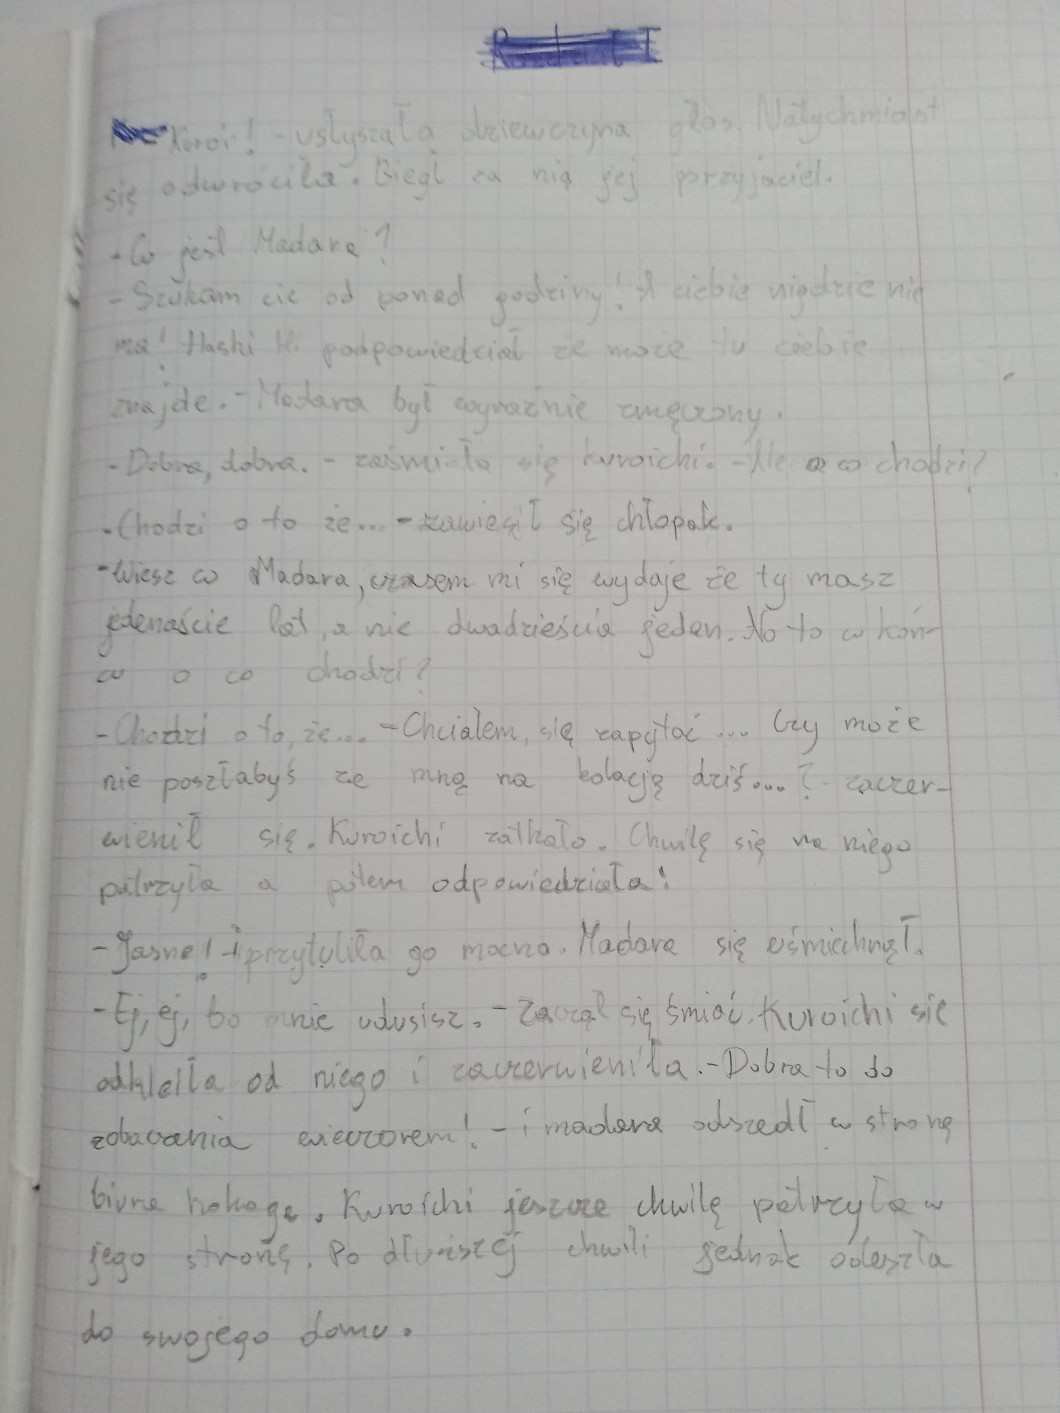 Rozdział I
Kuroi! - usłyszała dziewczyna głos. Natychmiast
się odwróciła. Biegł za nią jej przyjaciel.
- Co jest Madara?
- Szukam cie od ponad godziny! A ciebie nigdzie nie
ma! Hashi mi podpowiedział że może tu ciebie
znajde. - Madara był wyraźnie zmęczony.
- Dobra, dobra. - zaśmiała się Kuroichi. - Ale o co chodzi?
- Chodzi o to że... - zawiesił się chłopak.
- Wiesz co Madara, czasem mi się wydaje że ty masz
jedenaście lat, a nie dwadzieścia jeden. No to w koń-
cu o co chodzi?
- Chodzi o to, że... - Chciałem, się zapytać ... Czy może
nie poszłabyś ze mną na kolację dziś...? - zaczer-
wienił się. Kuroichi zatkało. Chwilę się na niego
patrzyła a potem odpowiedziała:
- Jasne! I przytuliła go mocno. Madara się uśmiechnął.
- Ej, ej, bo mnie udusisz. - Zaczął się śmiać. Kuroichi sie
odkleiła od niego i zaczerwieniła. - Dobra to do
zobaczenia wieczorem! - i madara odszedł w stronę
biura hokage. Kuroichi jeszcze chwilę patrzyła w
jego stronę. Po dłuższej chwili jednak odeszła
do swojego domu.